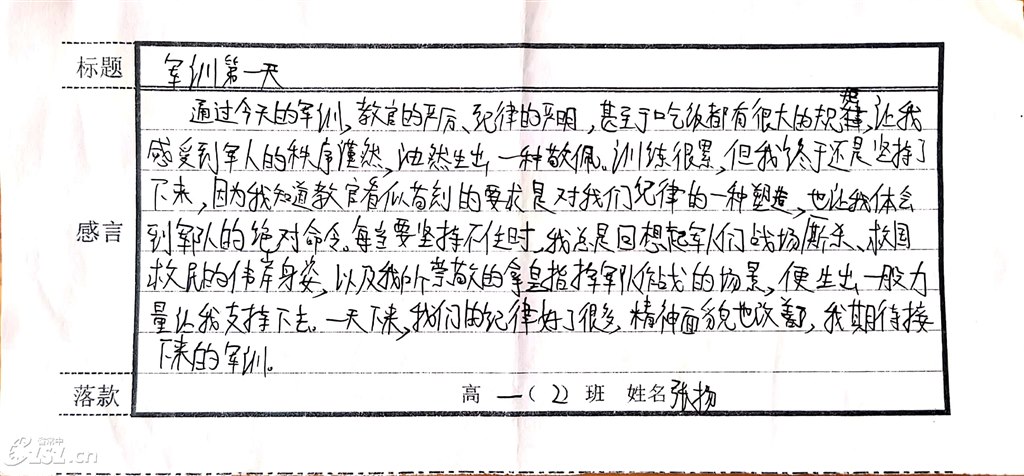 标题
军训第一天
通过今天的军训,教官的严厉、纪律的严明,甚至于吃饭都有很大的规矩,让我
感受到军人的秩序谨然,油然生出一种敬佩。训练很累,但我终于还是坚持了
下来,因为我知道教官看似苛刻的要求是对我们纪律的一种塑造,也让我体会
感言
到军队的绝对命令。每当要坚持不住时,我总是回想起军人们战场厮杀、救国
救民的伟岸身姿,以及我所崇敬的拿皇指挥军队作战的场景,便生出一股力
量让我支持下去。一天下来,我们的纪律好了很多,精神面貌也改善了,我期待接
下来的军训。
落款
高一(2)班 姓名张扬